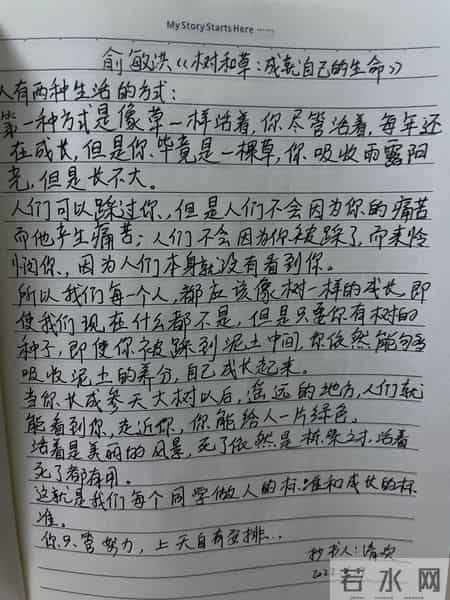 My Story Starts Here ······
俞敏洪《树和草：成就自己的生命》
人有两种生活的方式：
第一种方式是像草一样活着，你尽管活着，每年还
在成长，但是你毕竟是一棵草，你吸收雨露阳
光，但是长不大。
人们可以踩过你、，但是人们不会因为你的痛苦
而他产生痛苦；人们不会因为你被踩了，而来怜
悯你、因为人们本身就没有看到你。
所以我们每一个人，都应该像树一样的成长，即
使我们现在什么都不是，但是只要你有树的
种子，即使你被踩到泥土中间，你依然能够
吸收泥土的养分，自己成长起来。
当你长成参天大树以后，遥远的地方，人们就
能看到你，走近你，你能给人一片绿色。
活着是美丽的风景，死了依然是栋梁之材，活着
死了都有用。
这就是我们每个同学做人的标准和成长的标
准。
你只管努力，上天自有安排...
抄书人：清
若水网